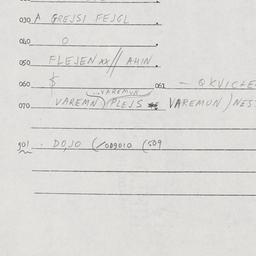 030 A GREJSI FEJGL
040 O
050 FLEJEN xx // AHIN
060 $ 061 - QKVICZE
VAREMUN
070 VAREMN) (PLEJS VAREMUN) NES
901 . DOJO (/009010 (509